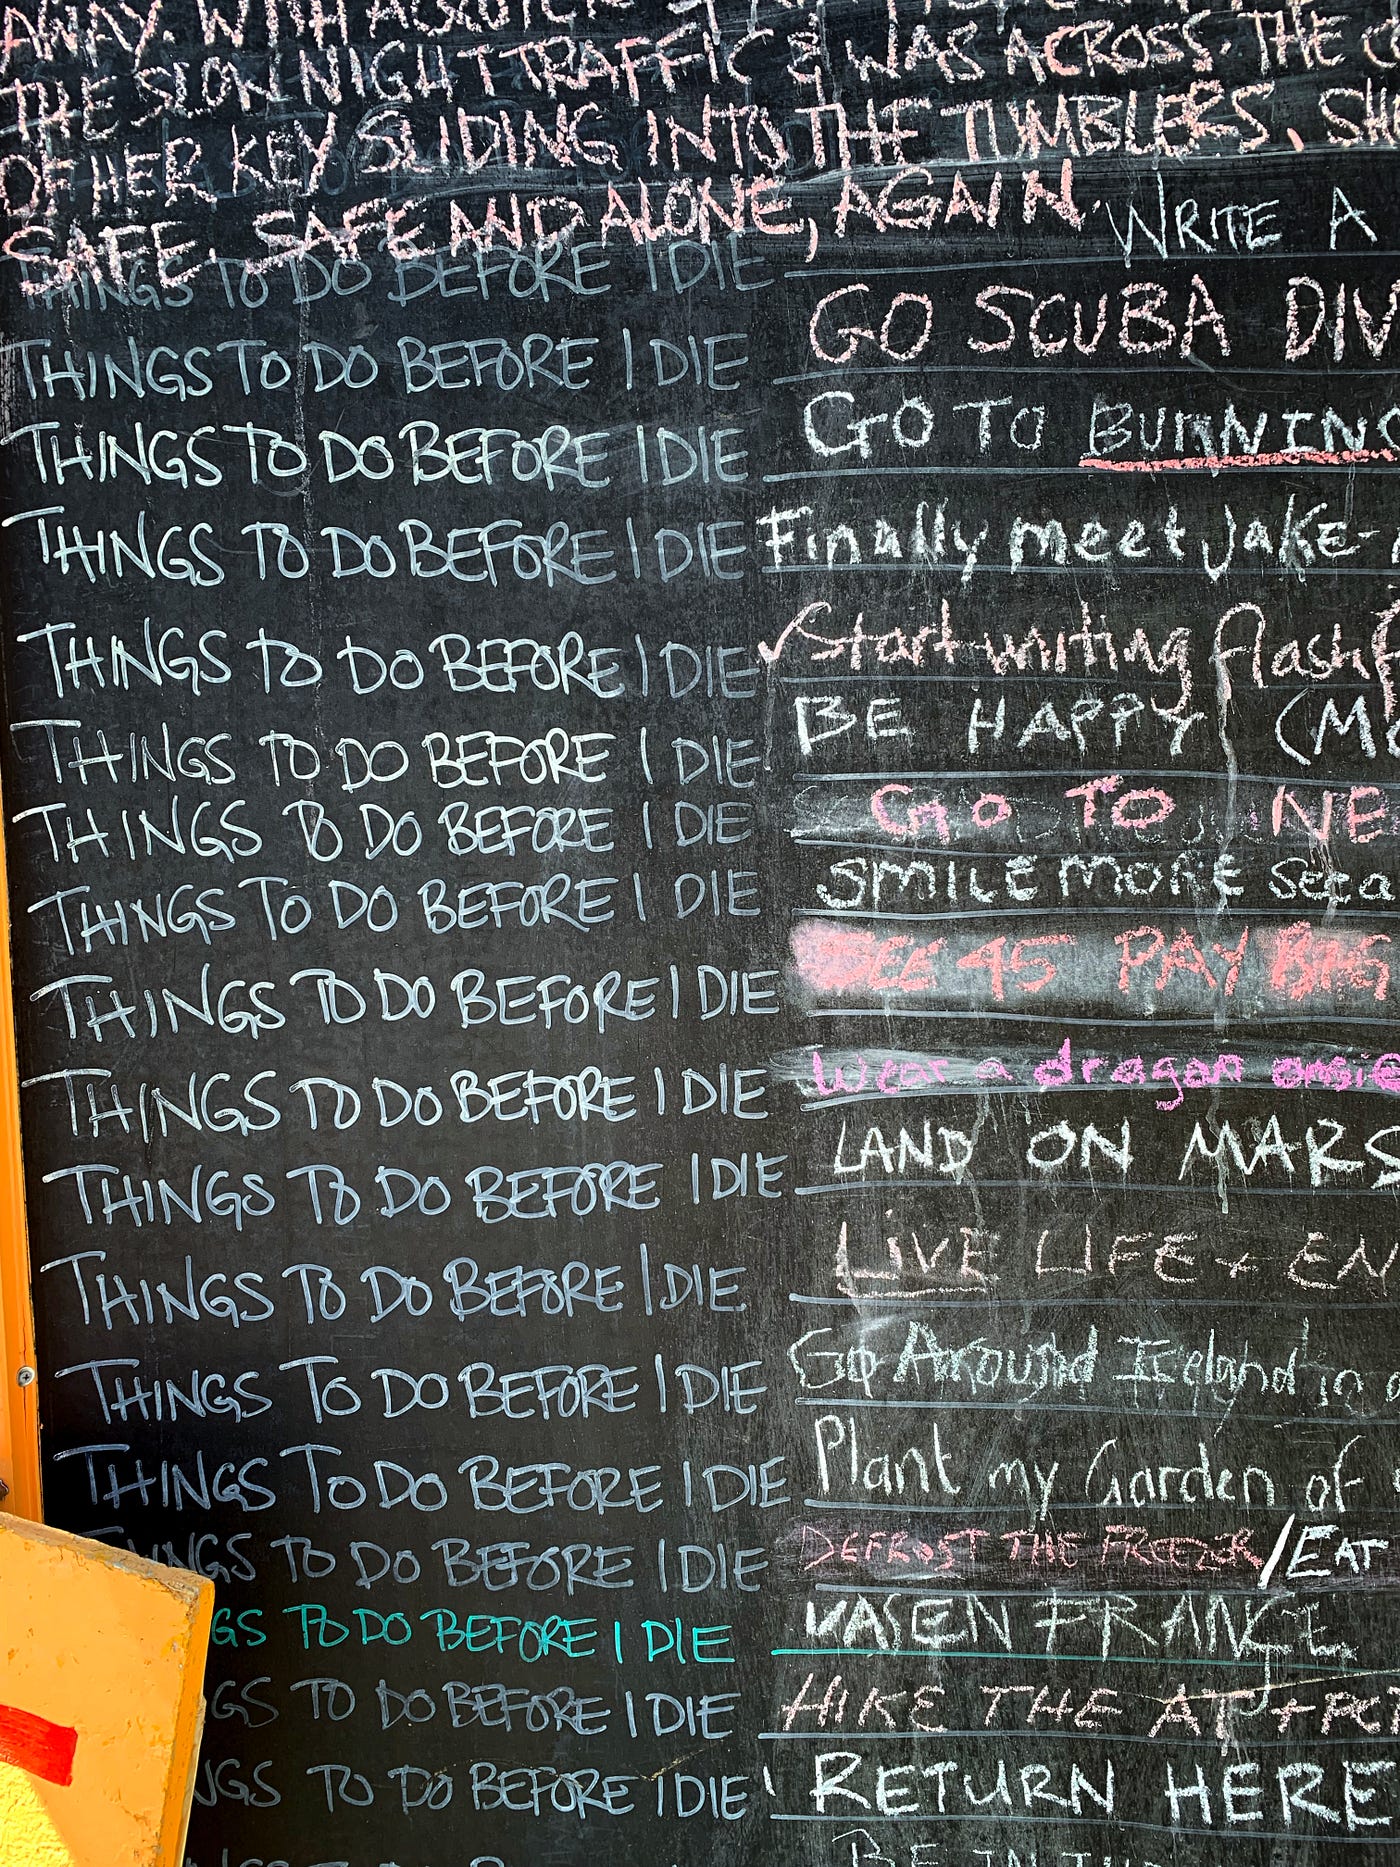 AWAY. WITH
THE SLOW NIGHT TRAFFIC & WAS ACROSS. THE
OF HER KEY SLIDING INTO THE TUMBLERS. SH
SAFE. SAFE AND ALONE, AGAIN.
THINGS TO DO BEFORE I DIE WRITE A
THINGS TO DO BEFORE I DIE GO SCUBA DIV
THINGS TO DO BEFORE I DIE GO TO BURNING
THINGS TO DO BEFORE I DIE Finally meet Jake-
THINGS TO DO BEFORE I DIE ✓Start writing flash
THINGS TO DO BEFORE I DIE BE HAPPY (M
THINGS TO DO BEFORE I DIE GO TO NE
THINGS TO DO BEFORE I DIE SMILE MORE
THINGS TO DO BEFORE I DIE SEE 45 PAY BIG
THINGS TO DO BEFORE I DIE Wear a dragon onsie
THINGS TO DO BEFORE I DIE LAND ON MARS
THINGS TO DO BEFORE I DIE LIVE LIFE + EN
THINGS TO DO BEFORE I DIE Go Around Ireland in a
THINGS TO DO BEFORE I DIE Plant my Garden of
NGS TO DO BEFORE I DIE DEFROST THE FREEZER/EAT
GS TO DO BEFORE I DIE
GS TO DO BEFORE I DIE HIKE THE AT
NGS TO DO BEFORE I DIE RETURN HERE
BE IN